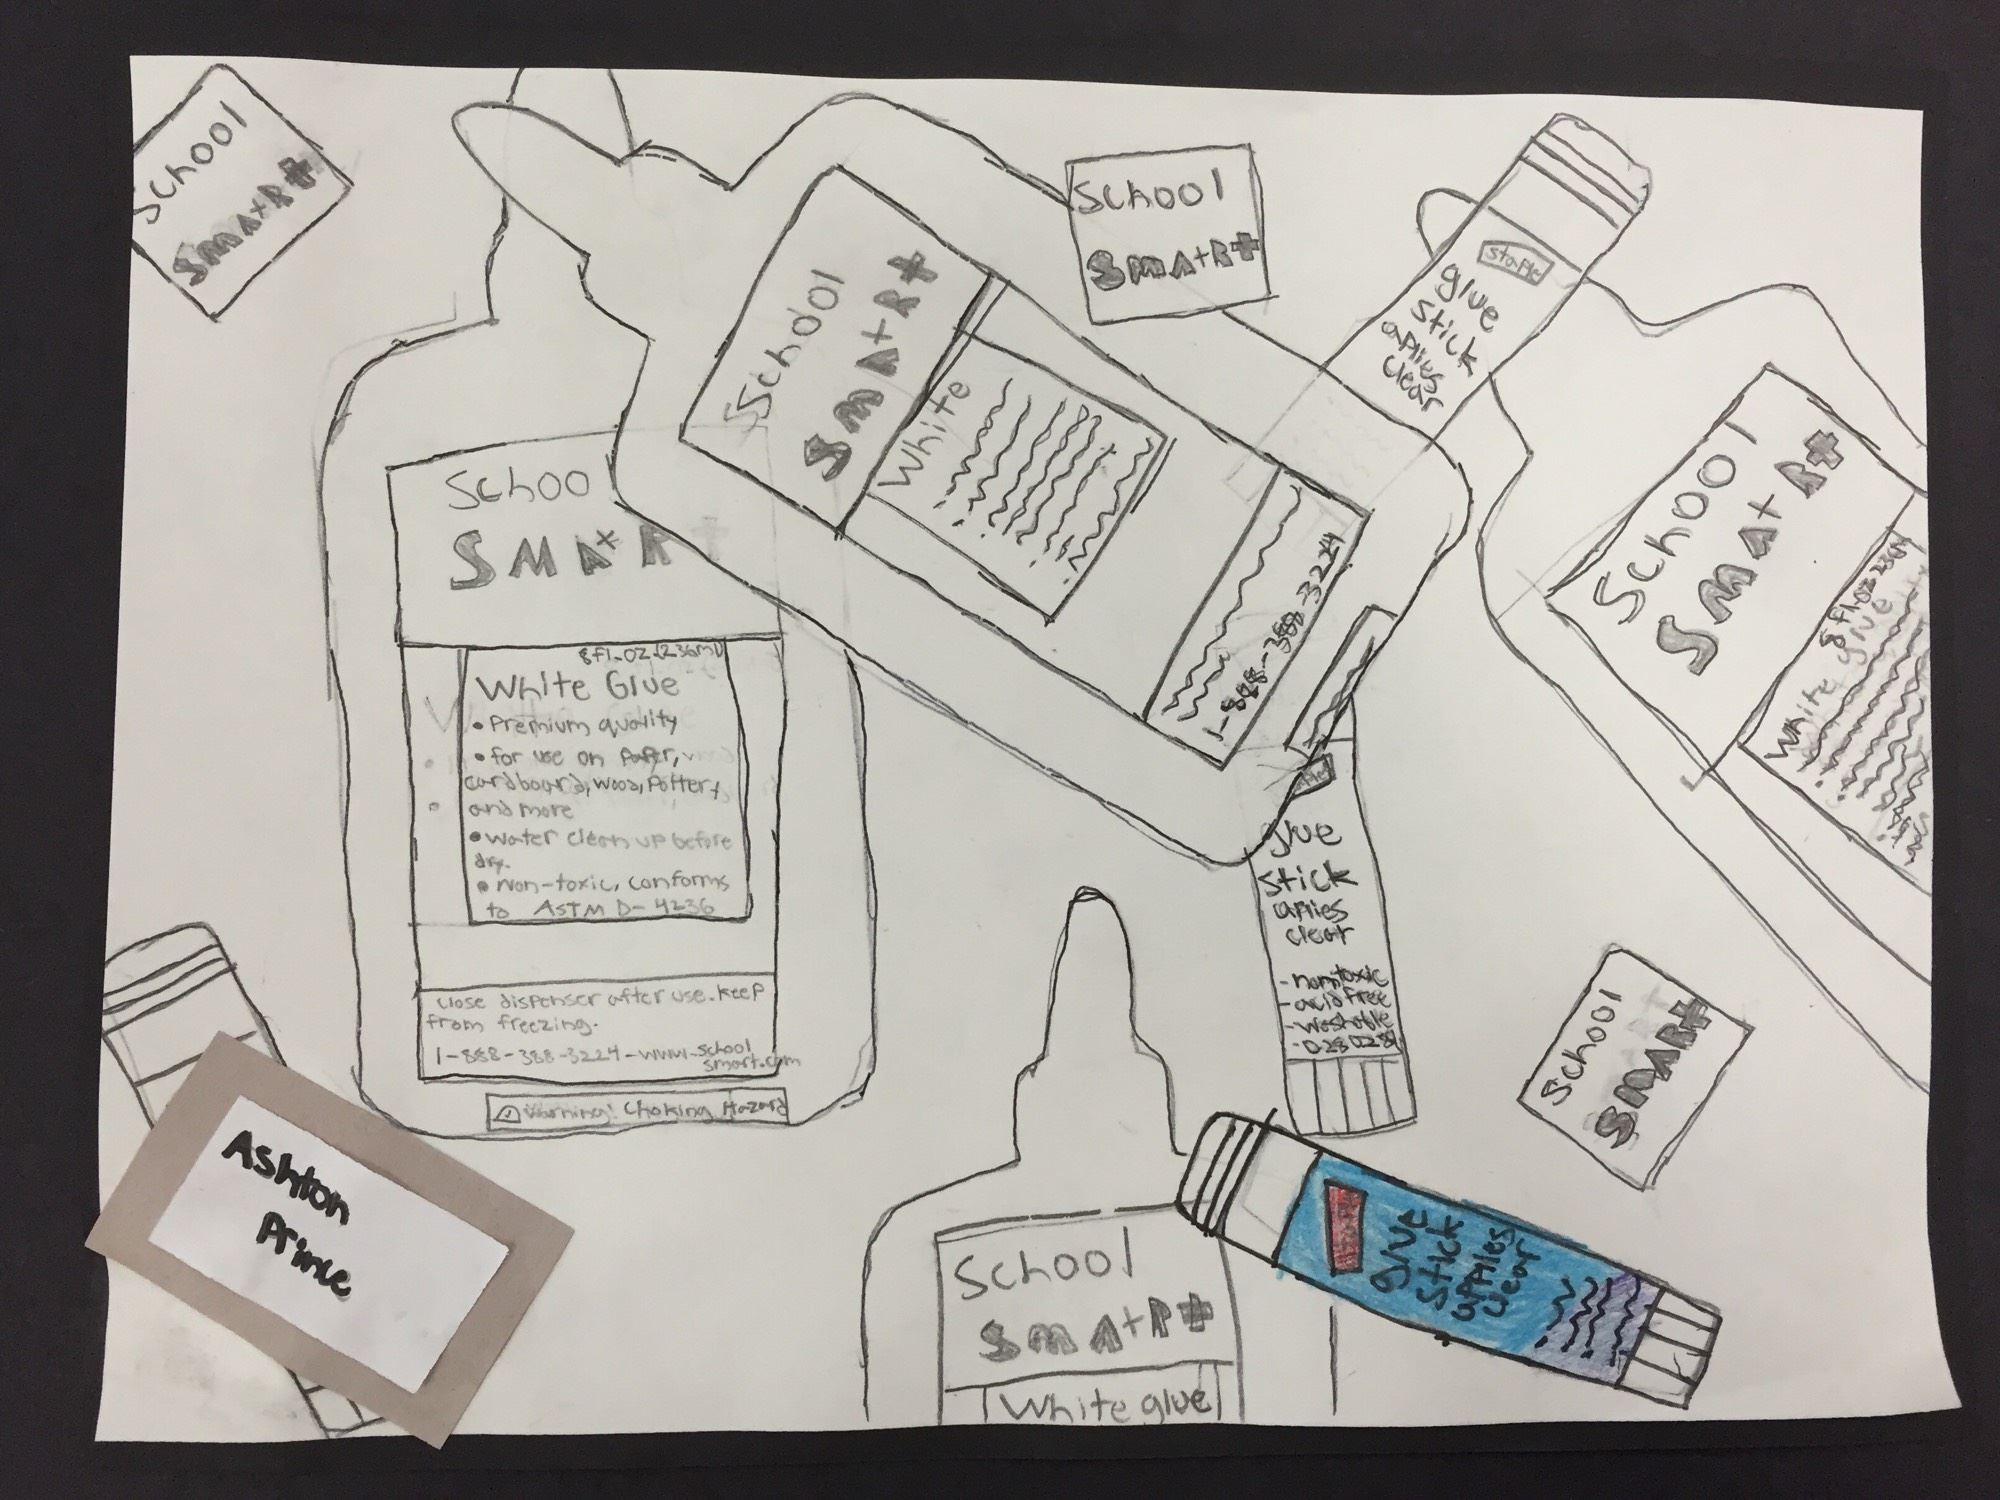 School
SMA+R+
School
SMA+R+
Staples
glue
stick
aplies
clear
School
SMA+R+
White
1-888-388-3224
School
SMA+R+
8 fl-oz
White glue
Schoo
SMA+R+
8fl-oz(236ml)
White Glue
• Premium quality
• for use on Paper,
cardboard, wood, Pottery,
and more
• water clean up before
dry.
• Non-toxic, conforms
to ASTM D-4236
close dispenser after use. keep
from freezing.
1-888-388-3224-www.school
smart.com
Warning! Choking Hazard
glue
stick
aplies
clear
- nontoxic
- acid free
- washable
School
SMAR+
Ashton
Prince
School
SMA+R+
White glue
glue
stick
applies
clear